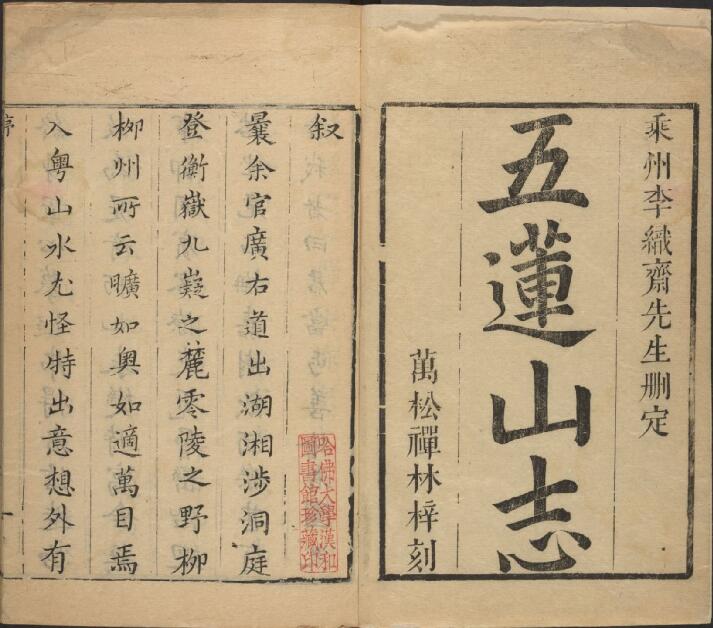 乘州李織齋先生删定
五蓮山志
萬松禪林梓刻
叙
曩余官廣右道出湖湘涉洞庭
登衡嶽九嶷之麓零陵之野柳
柳州所云曠如奧如適萬目焉
入粤山水尤怪特出意想外有
序
一
哈佛大學漢和
圖書館珍藏印